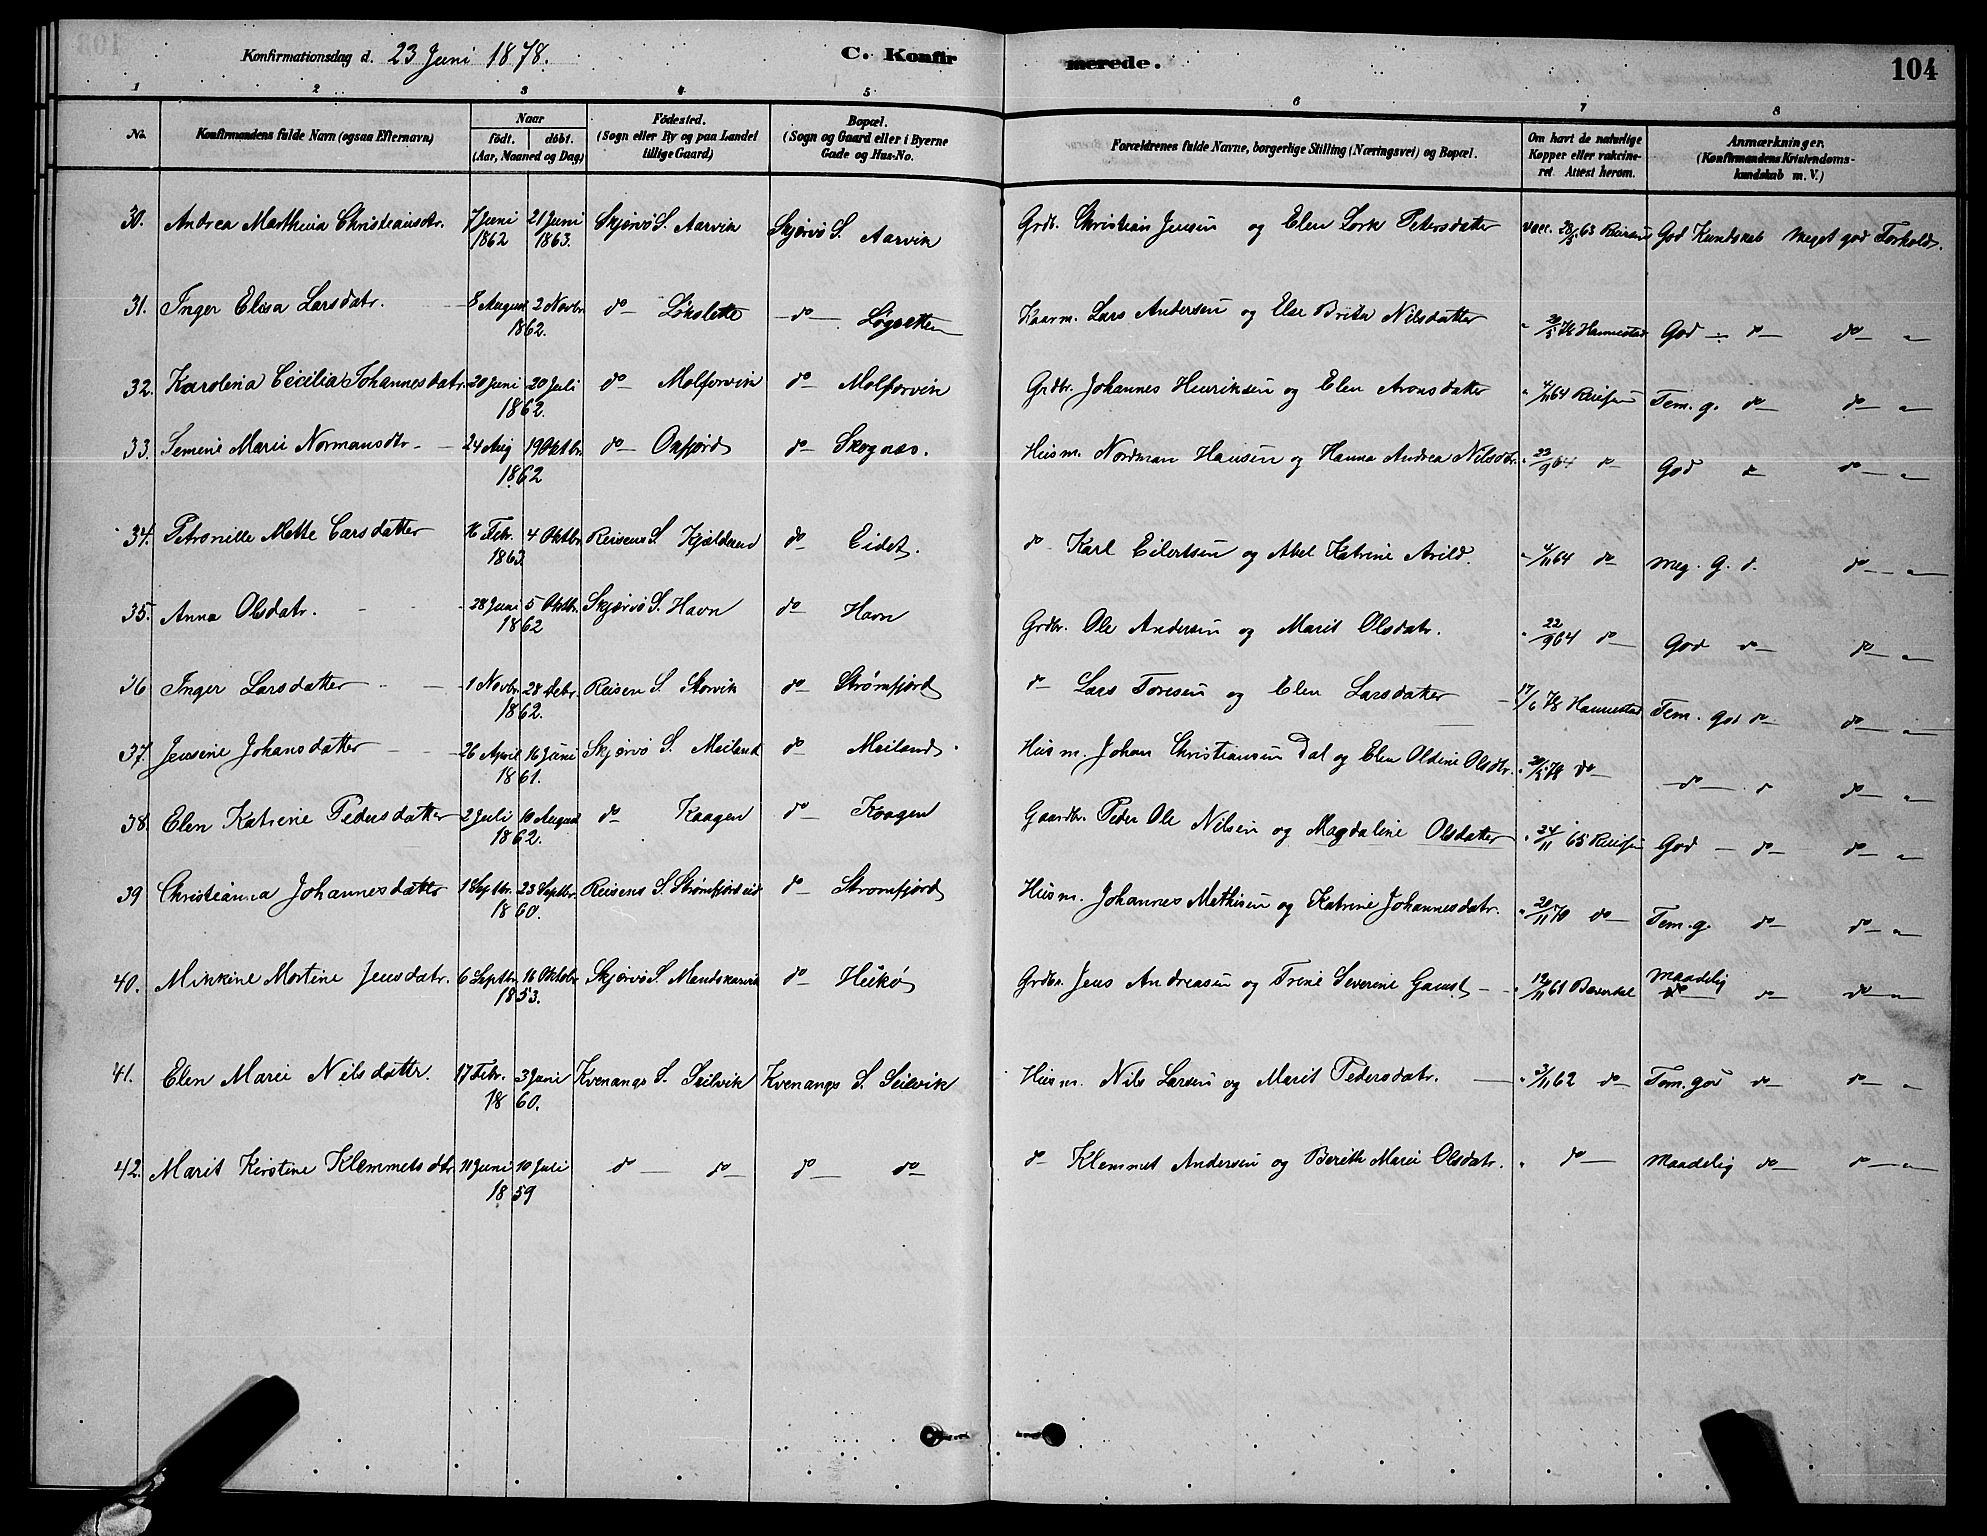 Konfirmationsdag d. 23 Juni 1878. C. Konfirmerede. 104
1 2 3 4 5 6 7 8
No. Konfirmandens fulde Navn (ogsaa Efternavn) Naar født. døbt. (Aar, Maaned og Dag) Fødested. (Sogn eller By og paa Landet tillige Gaard) Bopæl. (Sogn og Gaard eller i Byerne Gade og Hus-No. Forældrenes fulde Navne, borgerlige Stilling (Næringsvei) og Bopæl. Om havt de naturlige Kopper eller vakcineret. Attest herom. Anmærkninger. (Konfirmandens Kristendomskundskab m. V.)
30. Andrea Marthina Christiansdtr. 7 Juni 1862 21 Juni 1863. Skjervø S. Aarvik Skjervø S. Aarvik Grdbr. Christian Jensen og Elen Lork Petersdatter Vacc. 28/5 63 God Kundskab Meget god Forhold.
31. Inger Elisa Larsdatr. 8 August 2 Novbr. 1862. do Løkslette do Løgsletten Kaarm. Lars Andersen og Else Brita Nilsdatter " 20/5 78 Hannestad God do do "
32. Karolina Cecilia Johannesdatr. 20 Juni 20 Juli 1862. do Molforvik do Molforvik Grdbr. Johannes Henriksen og Elen Aronsdatter " 4/11 64 Tem. g. do do "
33. Semine Marie Normansdtr 24 Aug 19 Oktbr. 1862 do Oxfjord do Skognæs. Husm. Nordman Hansen og Hanna Andrea Nilsdtr. " 22/9 64 do God do do "
34. Petronille Mette Carsdatter 16 Febr. 4 Oktbr. 1863 Reisens S. Kjelderen do Eidet. do Karl Eilertsen og Abel Katrine Arild. " 4/11 64 do Meg. G. d. do "
35. Anna Olsdatr. 28 Juni 5 Oktbr. 1862 Skjervø S. Havn do Havn Grdbr. Ole Andersen og Marit Olsdatr. " 22/9 64 do God do do "
36 Inger Larsdatter 1 Novbr. 28 Debr. 1862. Reisen S. Storvik do Strømfjord do Lars Toresen og Elen Larsdatter 17/6 78 Hannestad Tem. god do do "
37. Jensine Johansdatter 26 April 16 Juni 1861. Skjervø S. Meiland do Meiland. Husm. Johan Christiansen Dal og Elen Oldine Olsdtr. " 20/5 78 do do do do "
38. Elen Katrine Pedersdatter 2 Juli 10 August 1862. do Kaagen do Kaagen Gaardbr. Peder Ole Nilsen og Magdaline Olsdatter " 24/11 65 God do do "
39 Christianna Johannesdatter 1 Septbr. 23 Septbr. 1860. Reisens S. Strømfjordeid do Strømfjord Husm. Johannes Mathisen og Katrine Johannesdatr. " 20/11 70 do Tem. g. do do "
40. Mikkine Mortine Jensdatr. 6 Septbr. 16 Oktober 1853. Skjervø S. Mandskarvik do Heikø Grdbr. Jens Andreasen og Trine Severine Gamst " 12/11 61 Baverdal Maadelig do do "
41. Elen Marie Nilsdattr. 17 Febr. 3 Juni 1860. Kvenangs S. Seilvik Kvenangs S. Seilvik Husm. Nils Larsen og Marit Pedersdatr. " 3/11 62 do Tem. god do do "
42. Marit Kirstine Klemmetsdtr 11 Juni 10 Juli 1859 do do do do do Klemmet Andersen og Berith Marie Olsdatr. " do Maadelig do do "